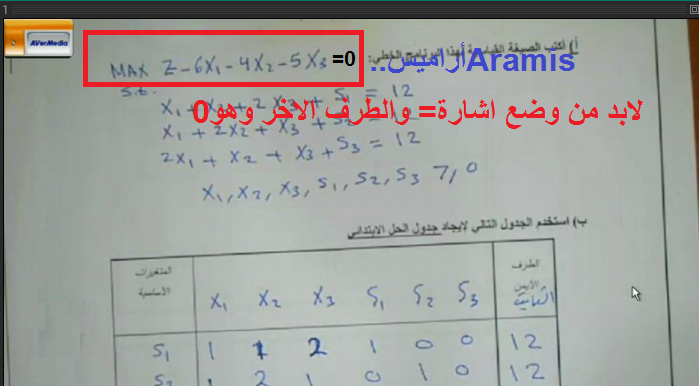 1
AVerMedia
أ) أكتب الصيغة القياسية لهذا البرنامج الخطي:
MAX Z - 6X₁ - 4X₂ - 5X₃ =0
Aramisأراميس..
s.t.
X₁ + X₂ + 2X₃ + S₁ = 12
لابد من وضع اشارة= والطرف الاخر وهو0
X₁ + 2X₂ + X₃ + S₂ = 12
2X₁ + X₂ + X₃ + S₃ = 12
X₁, X₂, X₃, S₁, S₂, S₃ 7, 0
ب) استخدم الجدول التالي لإيجاد جدول الحل الابتدائي
المتغيرات الأساسية X₁ X₂ X₃ S₁ S₂ S₃ الطرف الأيمن
S₁ 1 1 2 1 0 0 12
S₂ 1 2 1 0 1 0 12